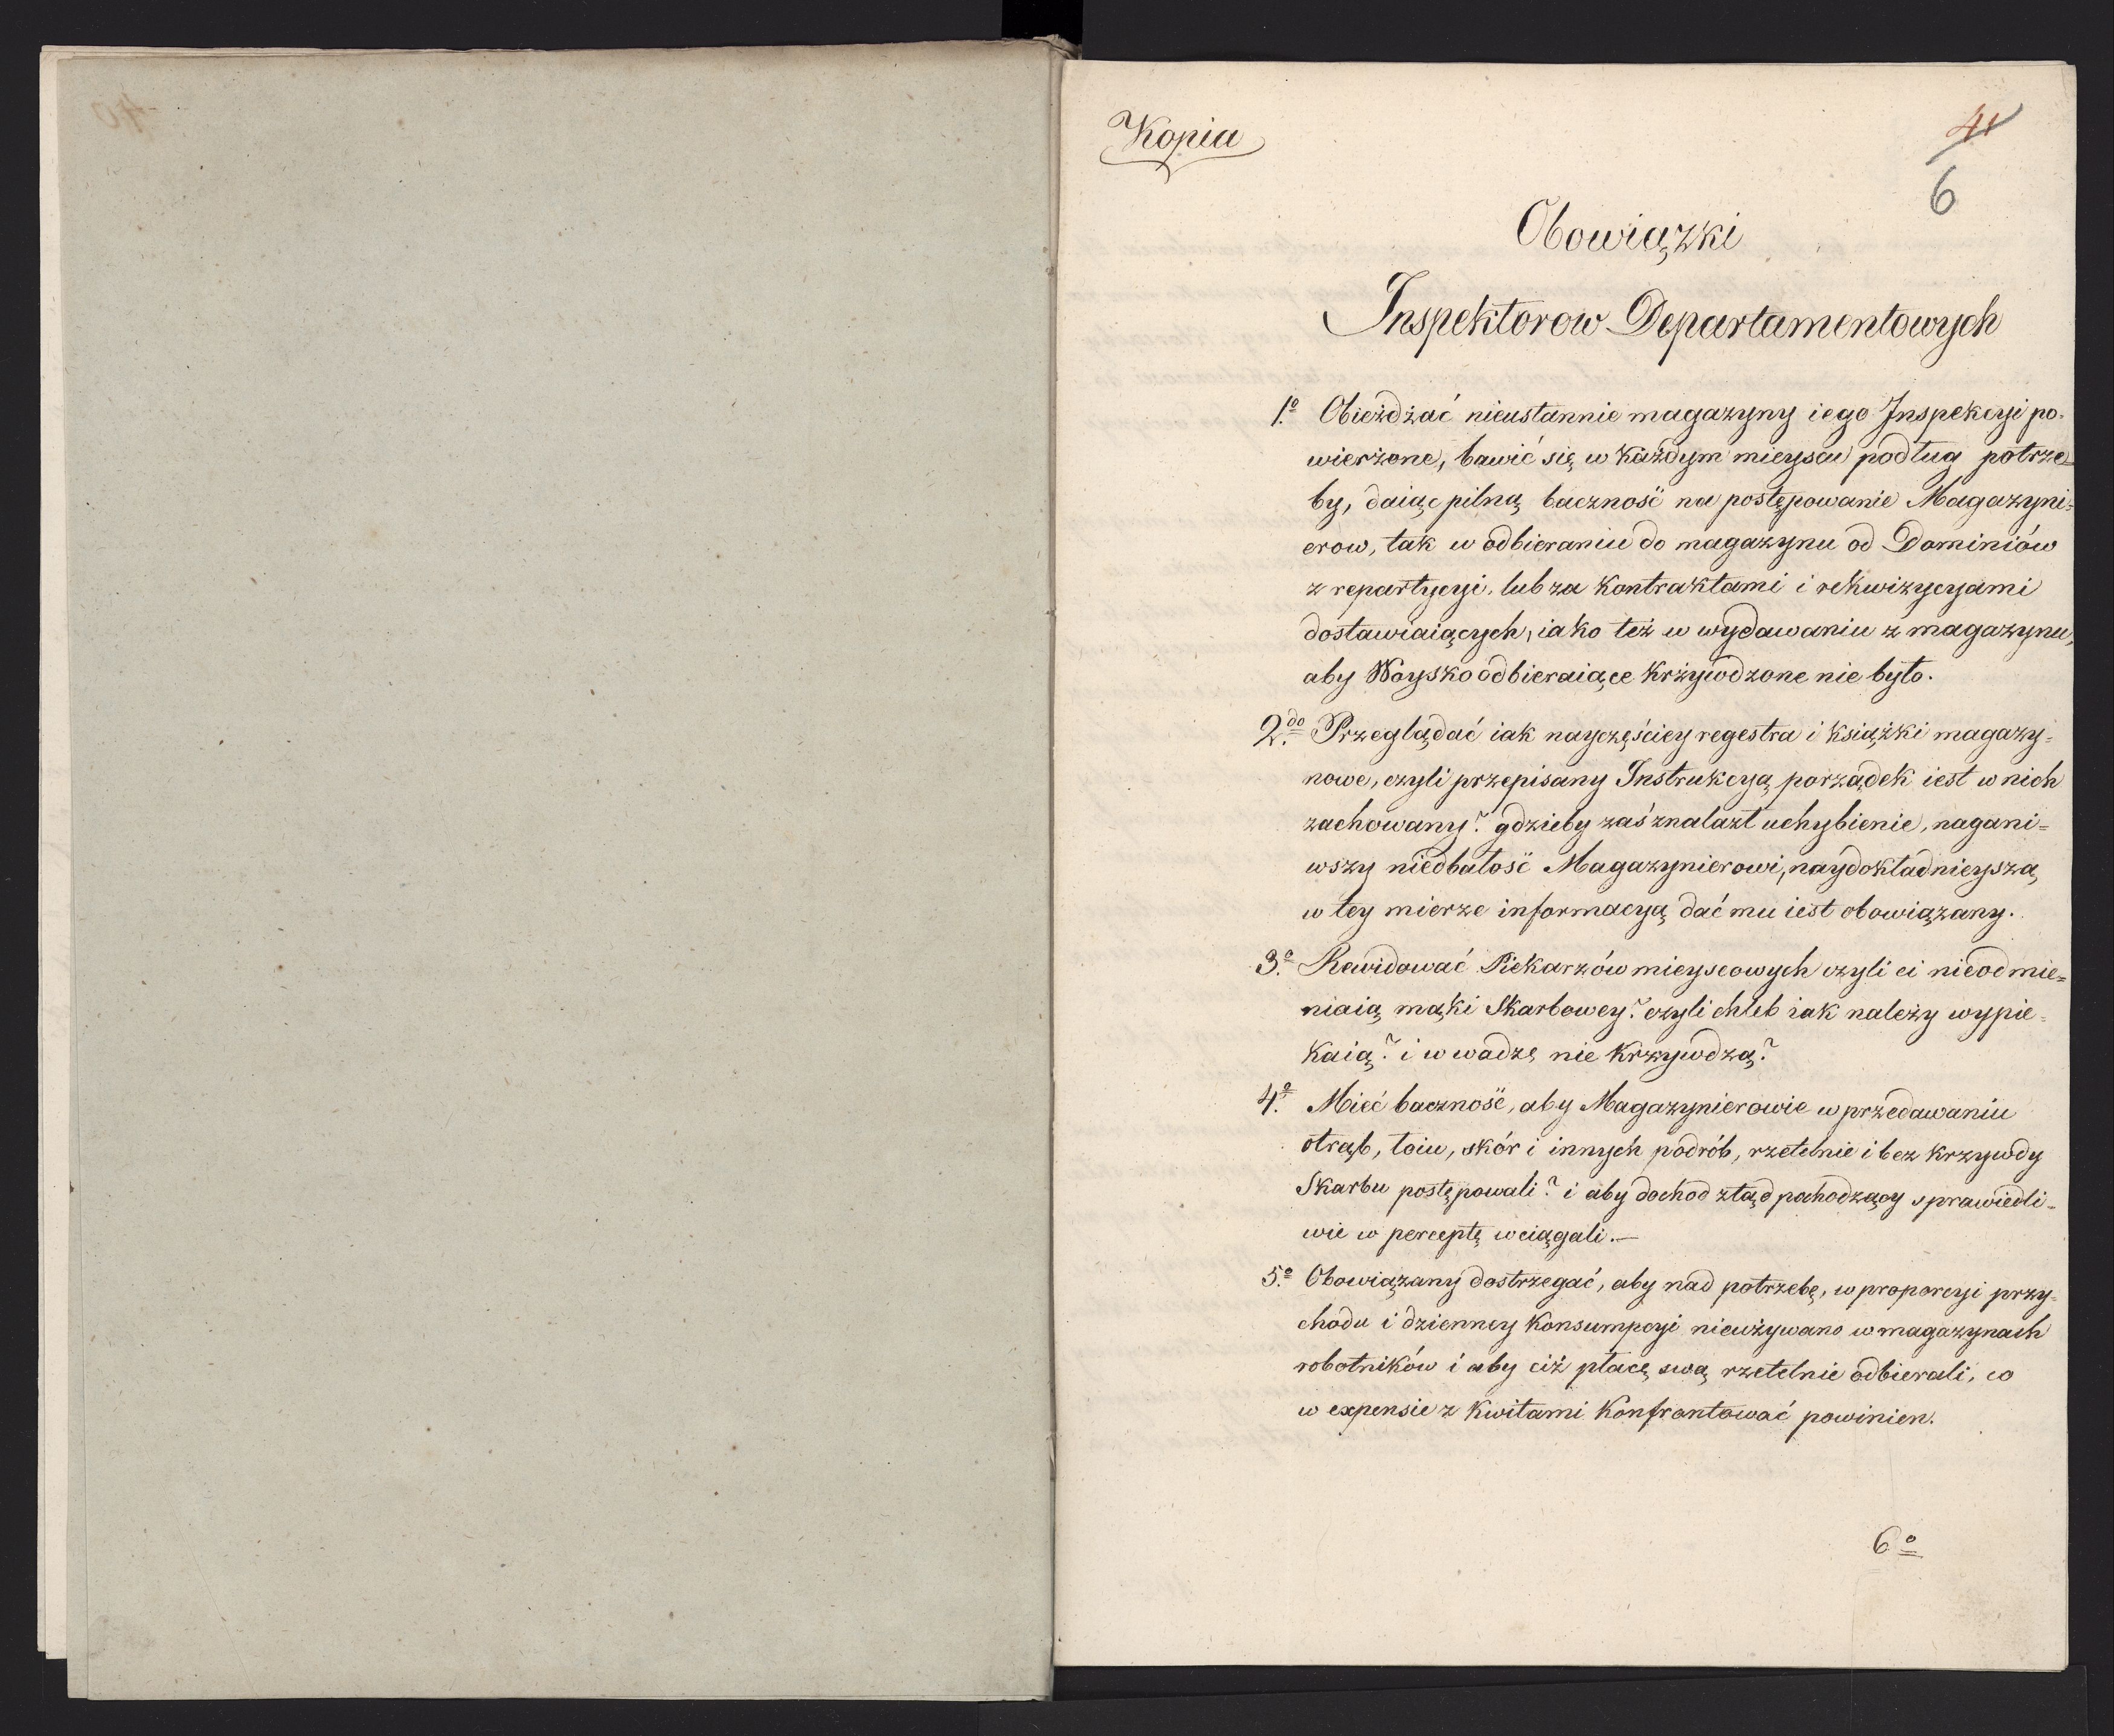 40
Kopia
41
6
Obowiązki
Inspektorow Departamentowych
1º Obieżdżać nieustannie magazyny iego Inspekcyi po-
wierzone, bawić się w każdym mieyscu podług potrze=
by, daiąc pilną baczność na postępowanie Magazyni=
erow, tak w odbieraniu do magazynu od Dominiów
z repartycyi, lub za kontraktami i rekwizycyami
dostawiaiących, iako też w wydawaniu z magazynu,
aby Woysko odbieraiące krzywdzone nie było.
2do Przeglądać iak nayczęściey regestra i książki magazy=
nowe, czyli przepisany Instrukcyą porządek iest w nich
zachowany? gdzieby zaś znalazł uchybienie, nagani=
wszy niedbałość Magazynierowi, naydokładnieyszą
w tey mierze informacyą dać mu iest obowiązany.
3º Rewidować Piekarzów mieyscowych czyli ci nieodmie=
niaią mąki Skarbowey? czyli chleb iak należy wypie=
kaią? i w wadze nie krzywdzą?
4º Mieć baczność, aby Magazynierowie w przedawaniu
otrąb, łoiu, skór i innych podrób, rzetelnie i bez krzywdy
Skarbu postępowali? i aby dochod ztąd pochodzący sprawiedli=
wie w perceptę wciągali.—
5º Obowiązany dostrzegać, aby nad potrzebę, w proporcyi przy=
chodu i dzienney konsumpcyi nieużywano w magazynach
robotników i aby ciż płacę swą rzetelnie odbierali, co
w expensie z kwitami konfrontować powinien.
6º